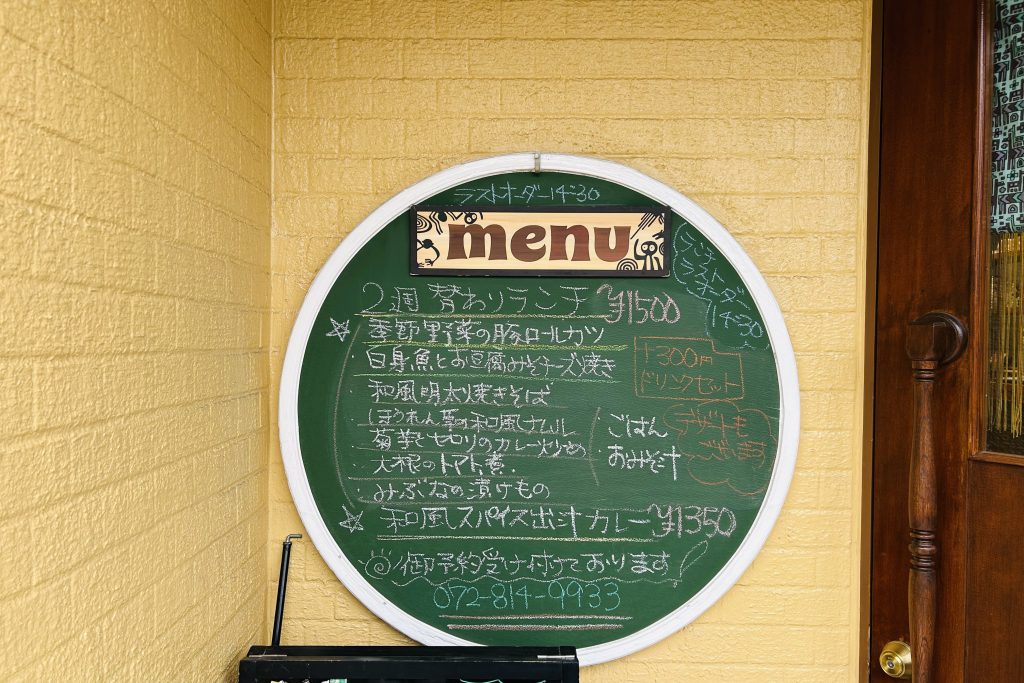 ラストオーダー14:30
menu
2週替わりランチ ¥1500
ランチ
ラスト
オーダー
14:30
☆季節野菜の豚ロールカツ
・白身魚とお豆腐みそチーズ焼き
和風明太焼きそば
ほうれん草の和風ナムル
菊芋とセロリのカレー炒め
大根のトマト煮
みぶなの漬けもの
ごはん
おみそ汁
300円
ドリンクセット
デザートも
☆和風スパイス出汁カレー ¥1350
◎御予約受け付けております!
072-814-9933